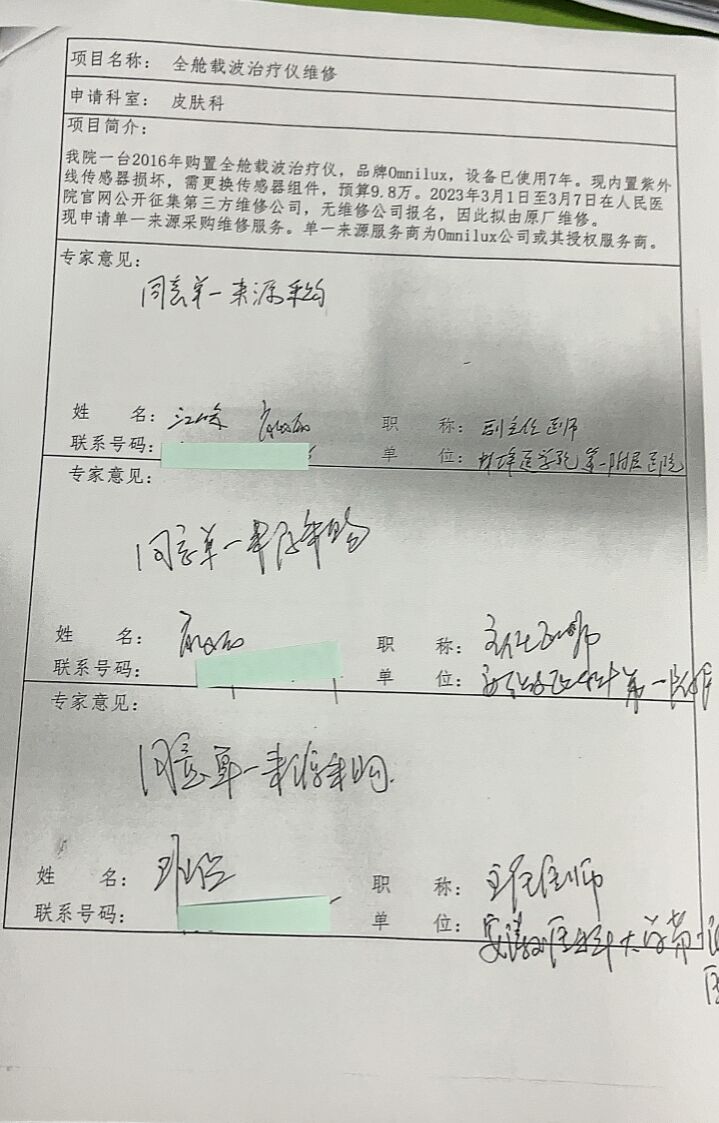 项目名称: 全舱载波治疗仪维修
申请科室: 皮肤科
项目简介:
我院一台2016年购置全舱载波治疗仪，品牌Omnilux，设备已使用7年。现内置紫外
线传感器损坏，需更换传感器组件，预算9.8万。2023年3月1日至3月7日在人民医
院官网公开征集第三方维修公司，无维修公司报名，因此拟由原厂维修。
现申请单一来源采购维修服务。单一来源服务商为Omnilux公司或其授权服务商。
专家意见:
同意单一来源采购
姓 名: 职 称: 副主任医师
联系号码: 单 位: 蚌埠医学院第一附属医院
专家意见:
同意单一来源采购
姓 名: 职 称: 主任医师
联系号码: 单 位: 第一附
专家意见:
同意单一来源采购.
姓 名: 职 称: 主任医师
联系号码: 单 位: 安徽医科大学第